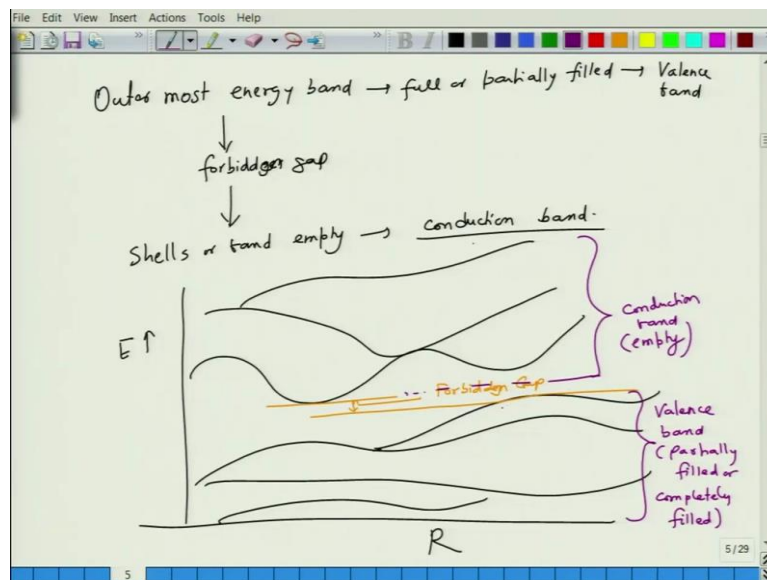 File Edit View Insert Actions Tools Help
B I
Outer most energy band → full or partially filled → Valence
band
↓
forbidden gap
↓
Shells or band empty → conduction band.
E ↑
Conduction
band
(empty)
Forbidden Gap
Valence
band
(partially
filled or
completely
filled)
R
5/29
5